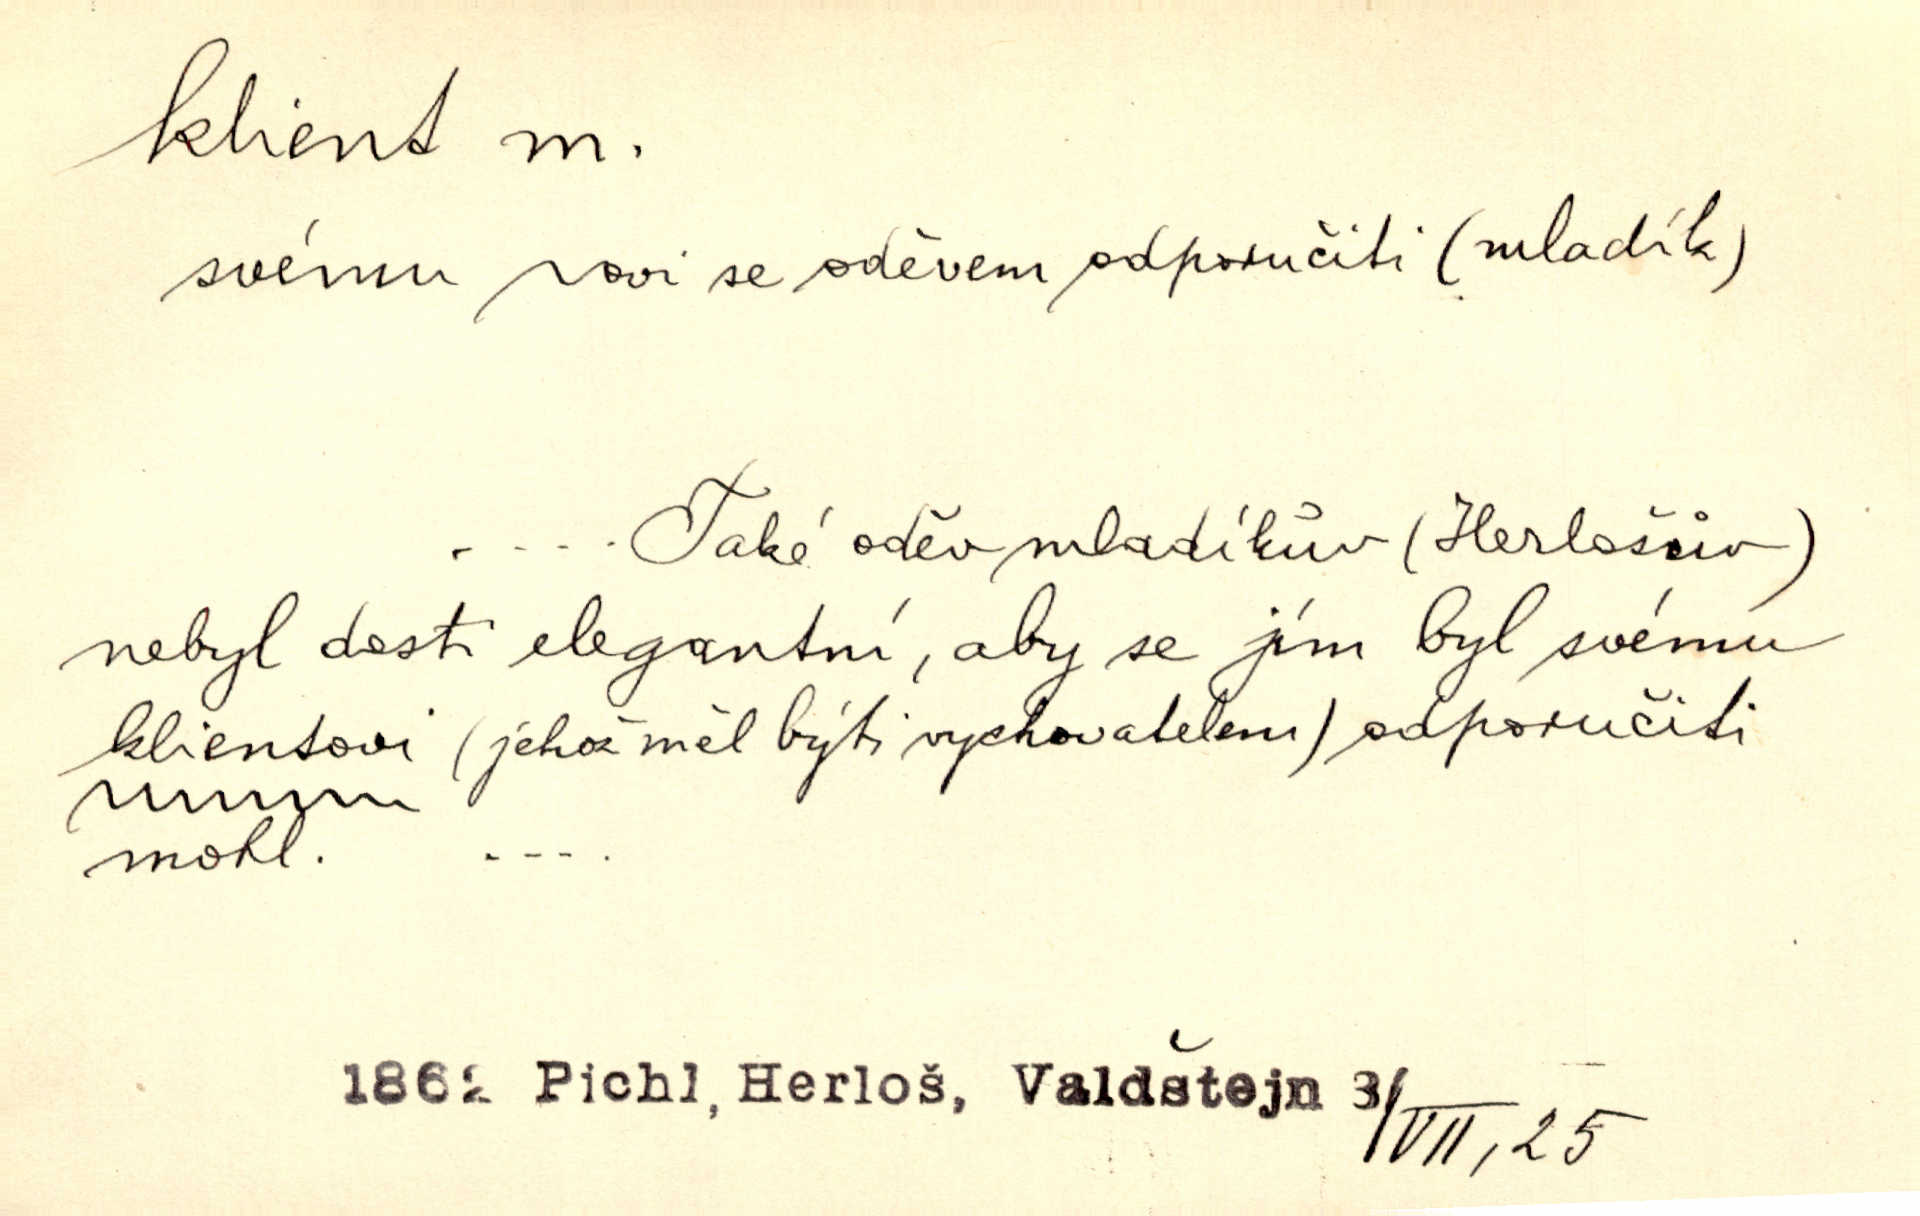 klient m.
svému ~ovi se oděvem odporučiti (mladík)
. - - - . Také oděv mladíkův (Herlošův)
nebyl dosti elegantní, aby se jím byl svému
klientovi (jehož měl býti vychovatelem) odporučiti
mohl. - - - .
1862 Pichl, Herloš, Valdštejn 3/VII, 25